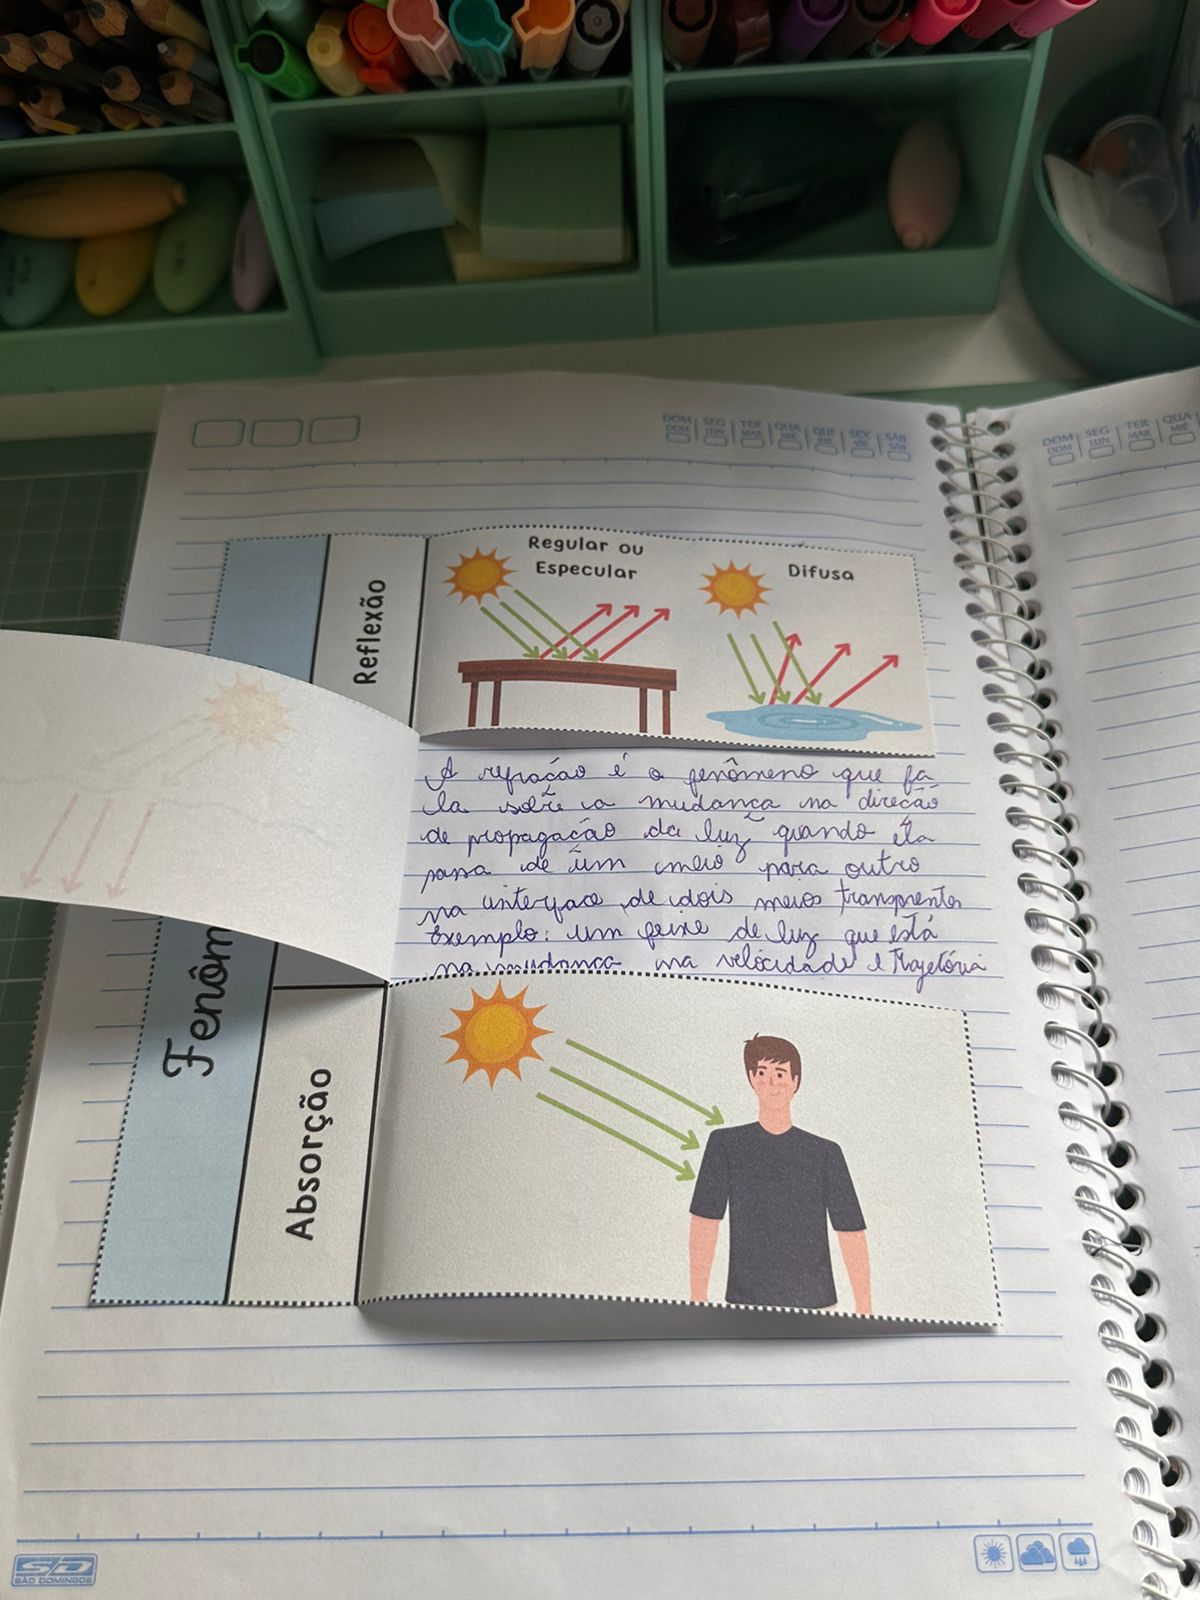 DOM SEG TER QUA QUI SEX SÁB
DOM LUN MAR MIÉ JUE VIE SÁB
DOM SEG TER QUA
DOM LUN MAR MIÉ
Regular ou
Especular
Difusa
Reflexão
A refração é o fenômeno que fa
la sobre a mudança na direção
de propagação da luz quando ela
passa de um meio para outro
na interface de dois meios transparentes
Exemplo: um feixe de luz que está
na mudança na velocidade e trajetória
Fenôm
Absorção
SD
SÃO DOMINGOS